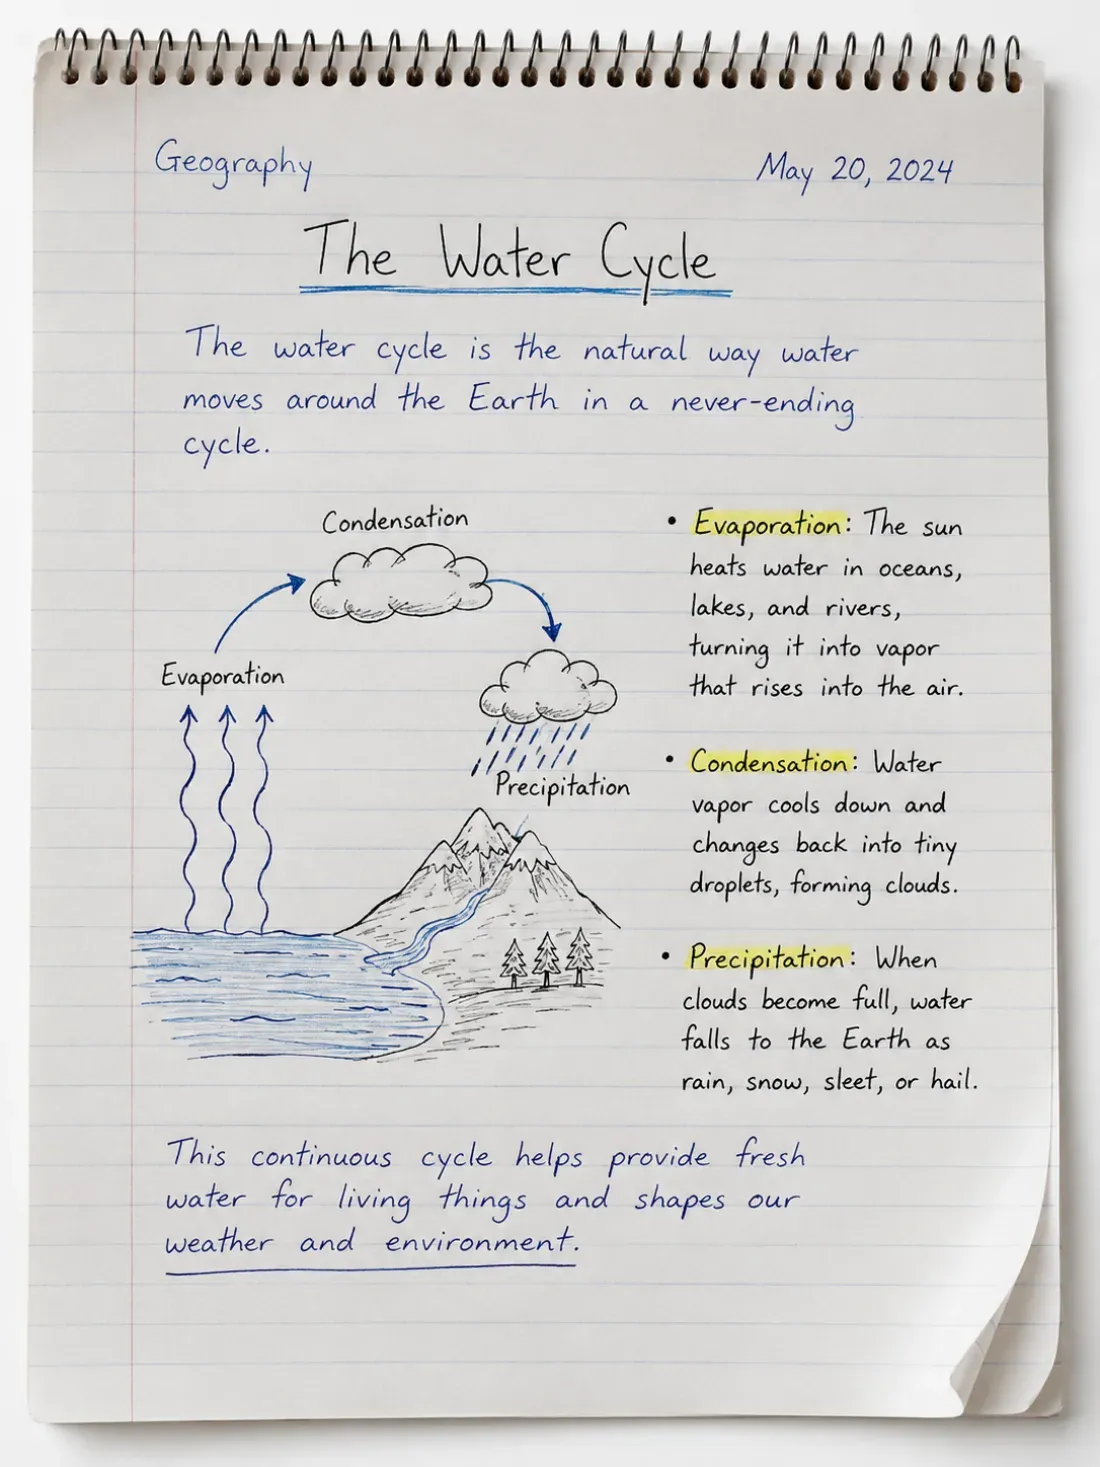 Geography
May 20, 2024
The Water Cycle
The water cycle is the natural way water
moves around the Earth in a never-ending
cycle.
Condensation
Evaporation
Precipitation
• Evaporation: The sun
heats water in oceans,
lakes, and rivers,
turning it into vapor
that rises into the air.
• Condensation: Water
vapor cools down and
changes back into tiny
droplets, forming clouds.
• Precipitation: When
clouds become full, water
falls to the Earth as
rain, snow, sleet, or hail.
This continuous cycle helps provide fresh
water for living things and shapes our
weather and environment.